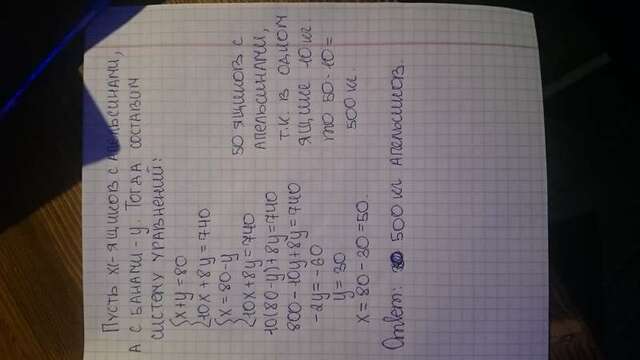 Пусть x - ящиков с апельсинами,
а с банами - y. Тогда составим
систему уравнений:
{x+y=80
{10x+8y=740
{x=80-y
{10x+8y=740
10(80-y)+8y=740
800-10y+8y=740
-2y=-60
y=30
x=80-30=50.
50 ящиков с
апельсинами,
т.к. в одном
ящике 10 кг.
то 50·10=
500 кг.
Ответ: 500 кг апельсинов.